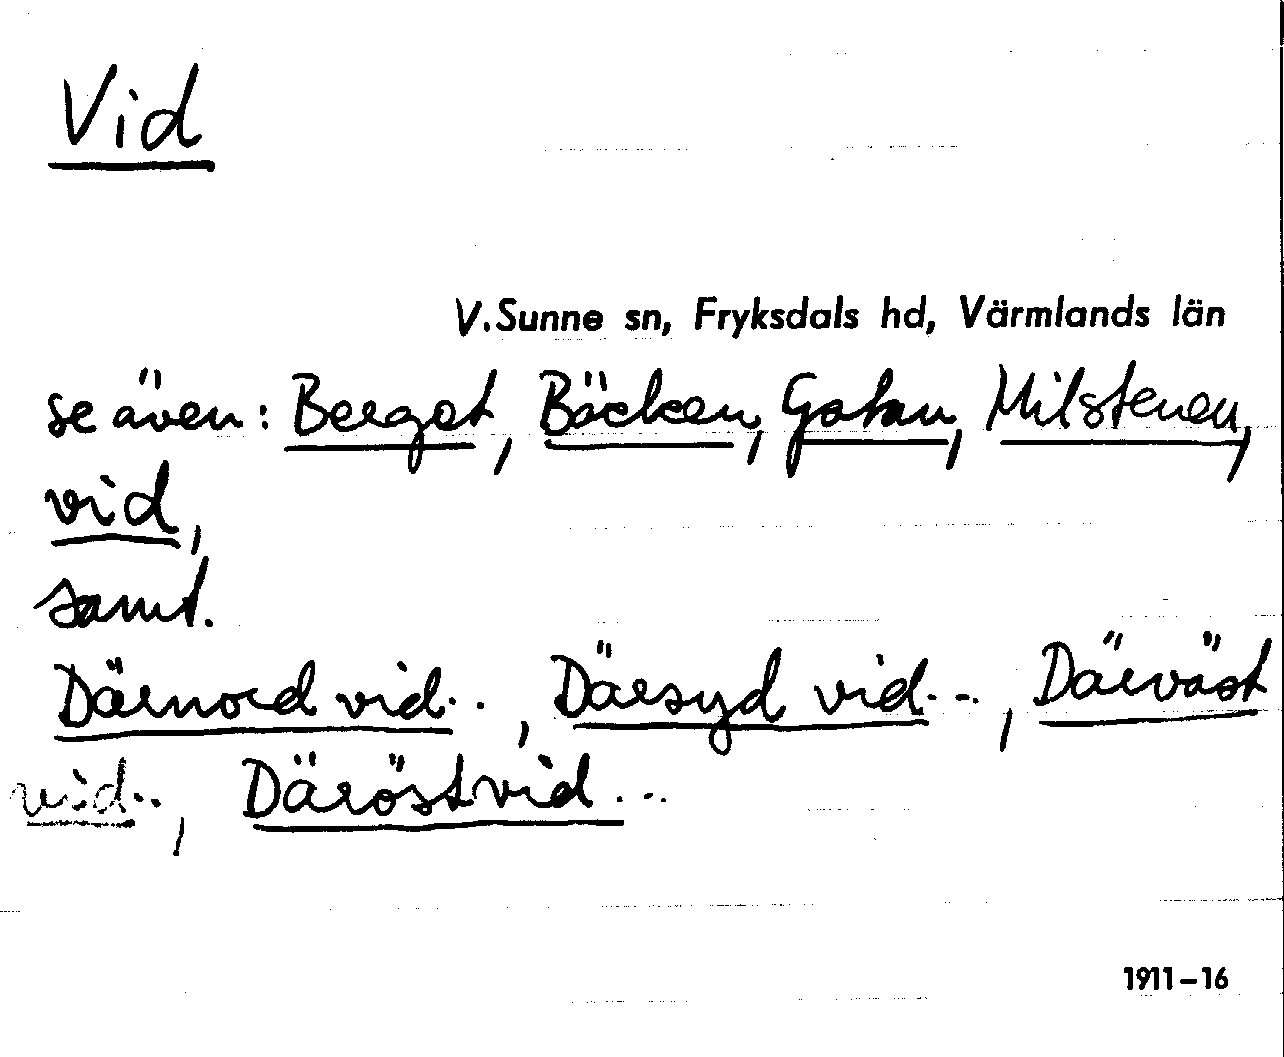 Vid
V. Sunne sn, Fryksdals hd, Värmlands län
se även: Berget, Bäcken, Gatan, Milstenen,
vid,
samt.
Därnord vid.., Därsyd vid..., Därväst
vid.., Däröst vid...
1911-16